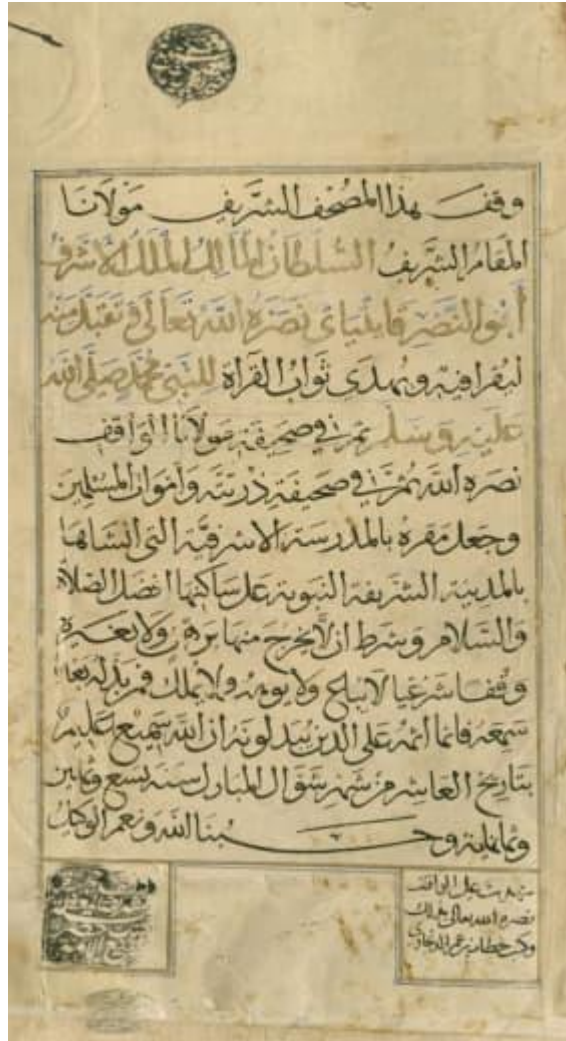 وقف هذا المصحف الشريف مولانا
المقام الشريف السلطان المالك الملك الاشرف
أبو النصر قايتباى نصره الله تعالى وتقبل منه
ليقرا فيه ويهدى ثواب القراة للنبى محمد صلى الله
عليه وسلم ثم فى صحيفة مولانا الواقف
نصره الله ثم فى صحيفة ذريته وأموات المسلمين
وجعل مقره بالمدرسة الاشرفية التى انشاها
بالمدينة الشريفة النبوية على ساكنها افضل الصلاة
والسلام وشرط ان لا يخرج منها برهن ولا بغيره
وقفا شرعيا لا يباع ولا يوهب ولا يملك فمن بدله بعد ما
سمعه فانما اثمه على الذين يبدلونه ان الله سميع عليم
بتاريخ العاشر من شهر شوال المبارك سنة تسع وثمانين
وثمانماية وحسبنا الله ونعم الوكيل
شهدت على الواقف
نصره الله تعالى بذلك
وكتب خطاب بن عمر